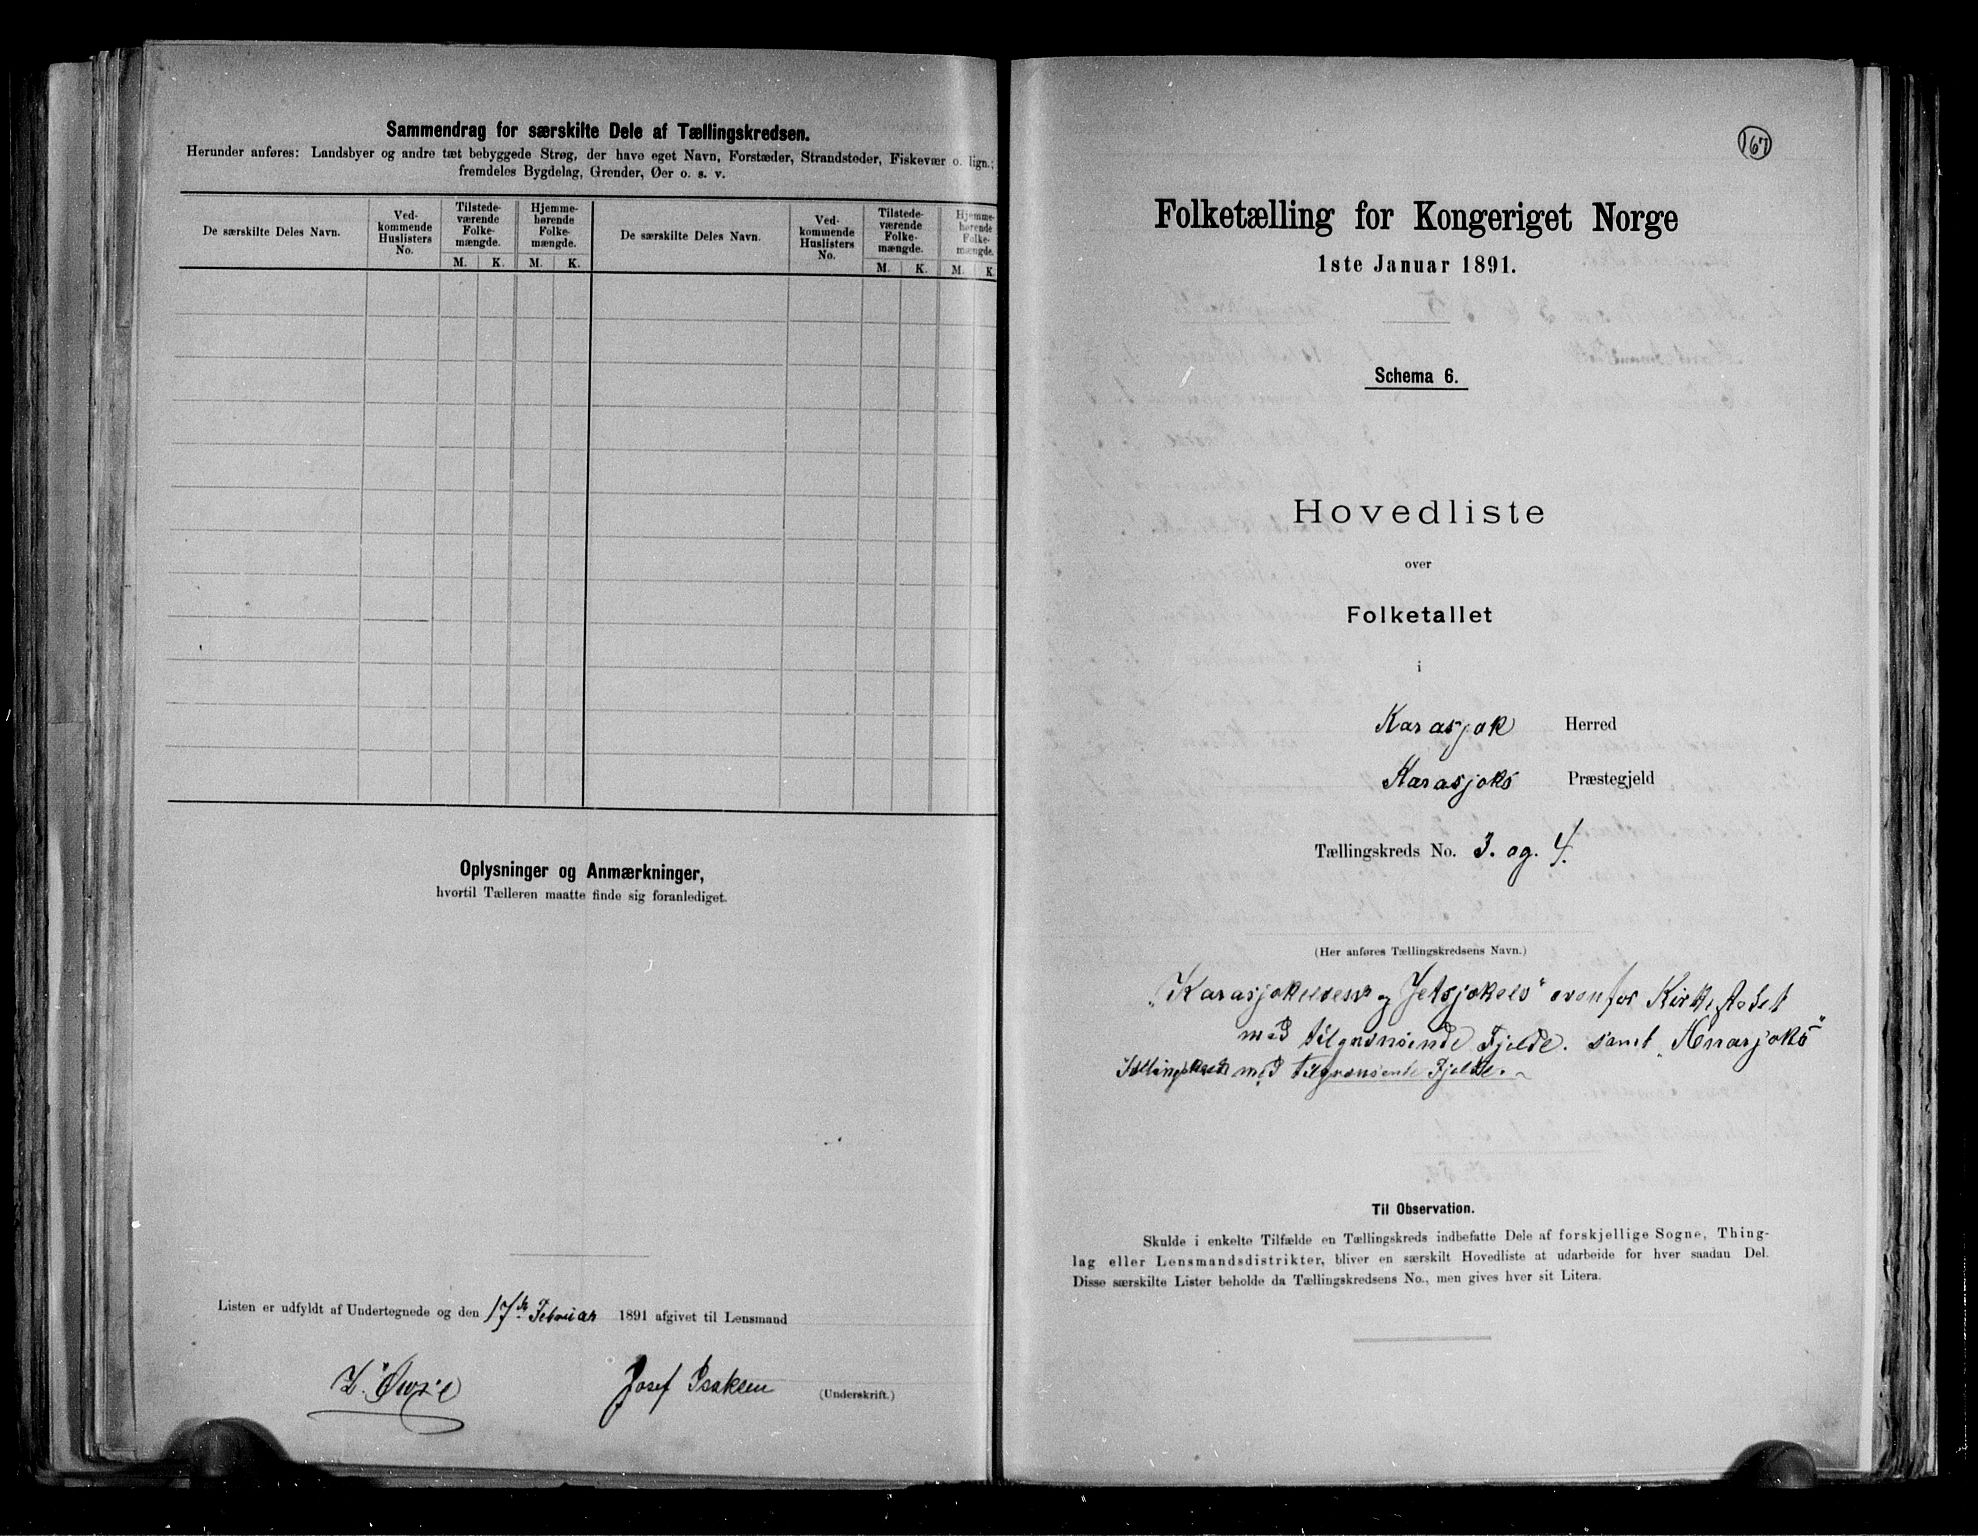 Sammendrag for særskilte Dele af Tællingskredsen.
Herunder anføres: Landsbyer og andre tæt bebyggede Strøg, der have eget Navn, Forstæder, Strandsteder, Fiskevær o. lign.;
fremdeles Bygdelag, Grender, Øer o. s. v.
De særskilte Deles Navn.
Ved-
kommende
Huslisters
No.
Tilstede-
værende
Folke-
mængde.
Hjemme-
hørende
Folke-
mængde.
De særskilte Deles Navn.
Ved-
kommende
Huslisters
No.
Tilstede-
værende
Folke-
mængde.
Hjemme-
hørende
Folke-
mængde.
M. K. M. K. M. K. M. K.
Oplysninger og Anmærkninger,
hvortil Tælleren maatte finde sig foranlediget.
Listen er udfyldt af Undertegnede og den 17de Februar 1891 afgivet til Lensmand
Josef Isaksen (Underskrift.)
167
Folketælling for Kongeriget Norge
1ste Januar 1891.
Schema 6.
Hovedliste
over
Folketallet
i
Karasjok Herred
Karasjoks Præstegjeld
Tællingskreds No. 3. og 4.
(Her anføres Tællingskredsens Navn.)
"Karasjokelven og Jetsjokelv" ovenfor Kirkestedet
med tilgrænsende Fjelde. samt "Anarjoks"
med tilgrænsende Fjelde.
Til Observation.
Skulde i enkelte Tilfælde en Tællingskreds indbefatte Dele af forskjellige Sogne, Thing-
lag eller Lensmandsdistrikter, bliver en særskilt Hovedliste at udarbeide for hver saadan Del.
Disse særskilte Lister beholde da Tællingskredsens No., men gives hver sit Litera.